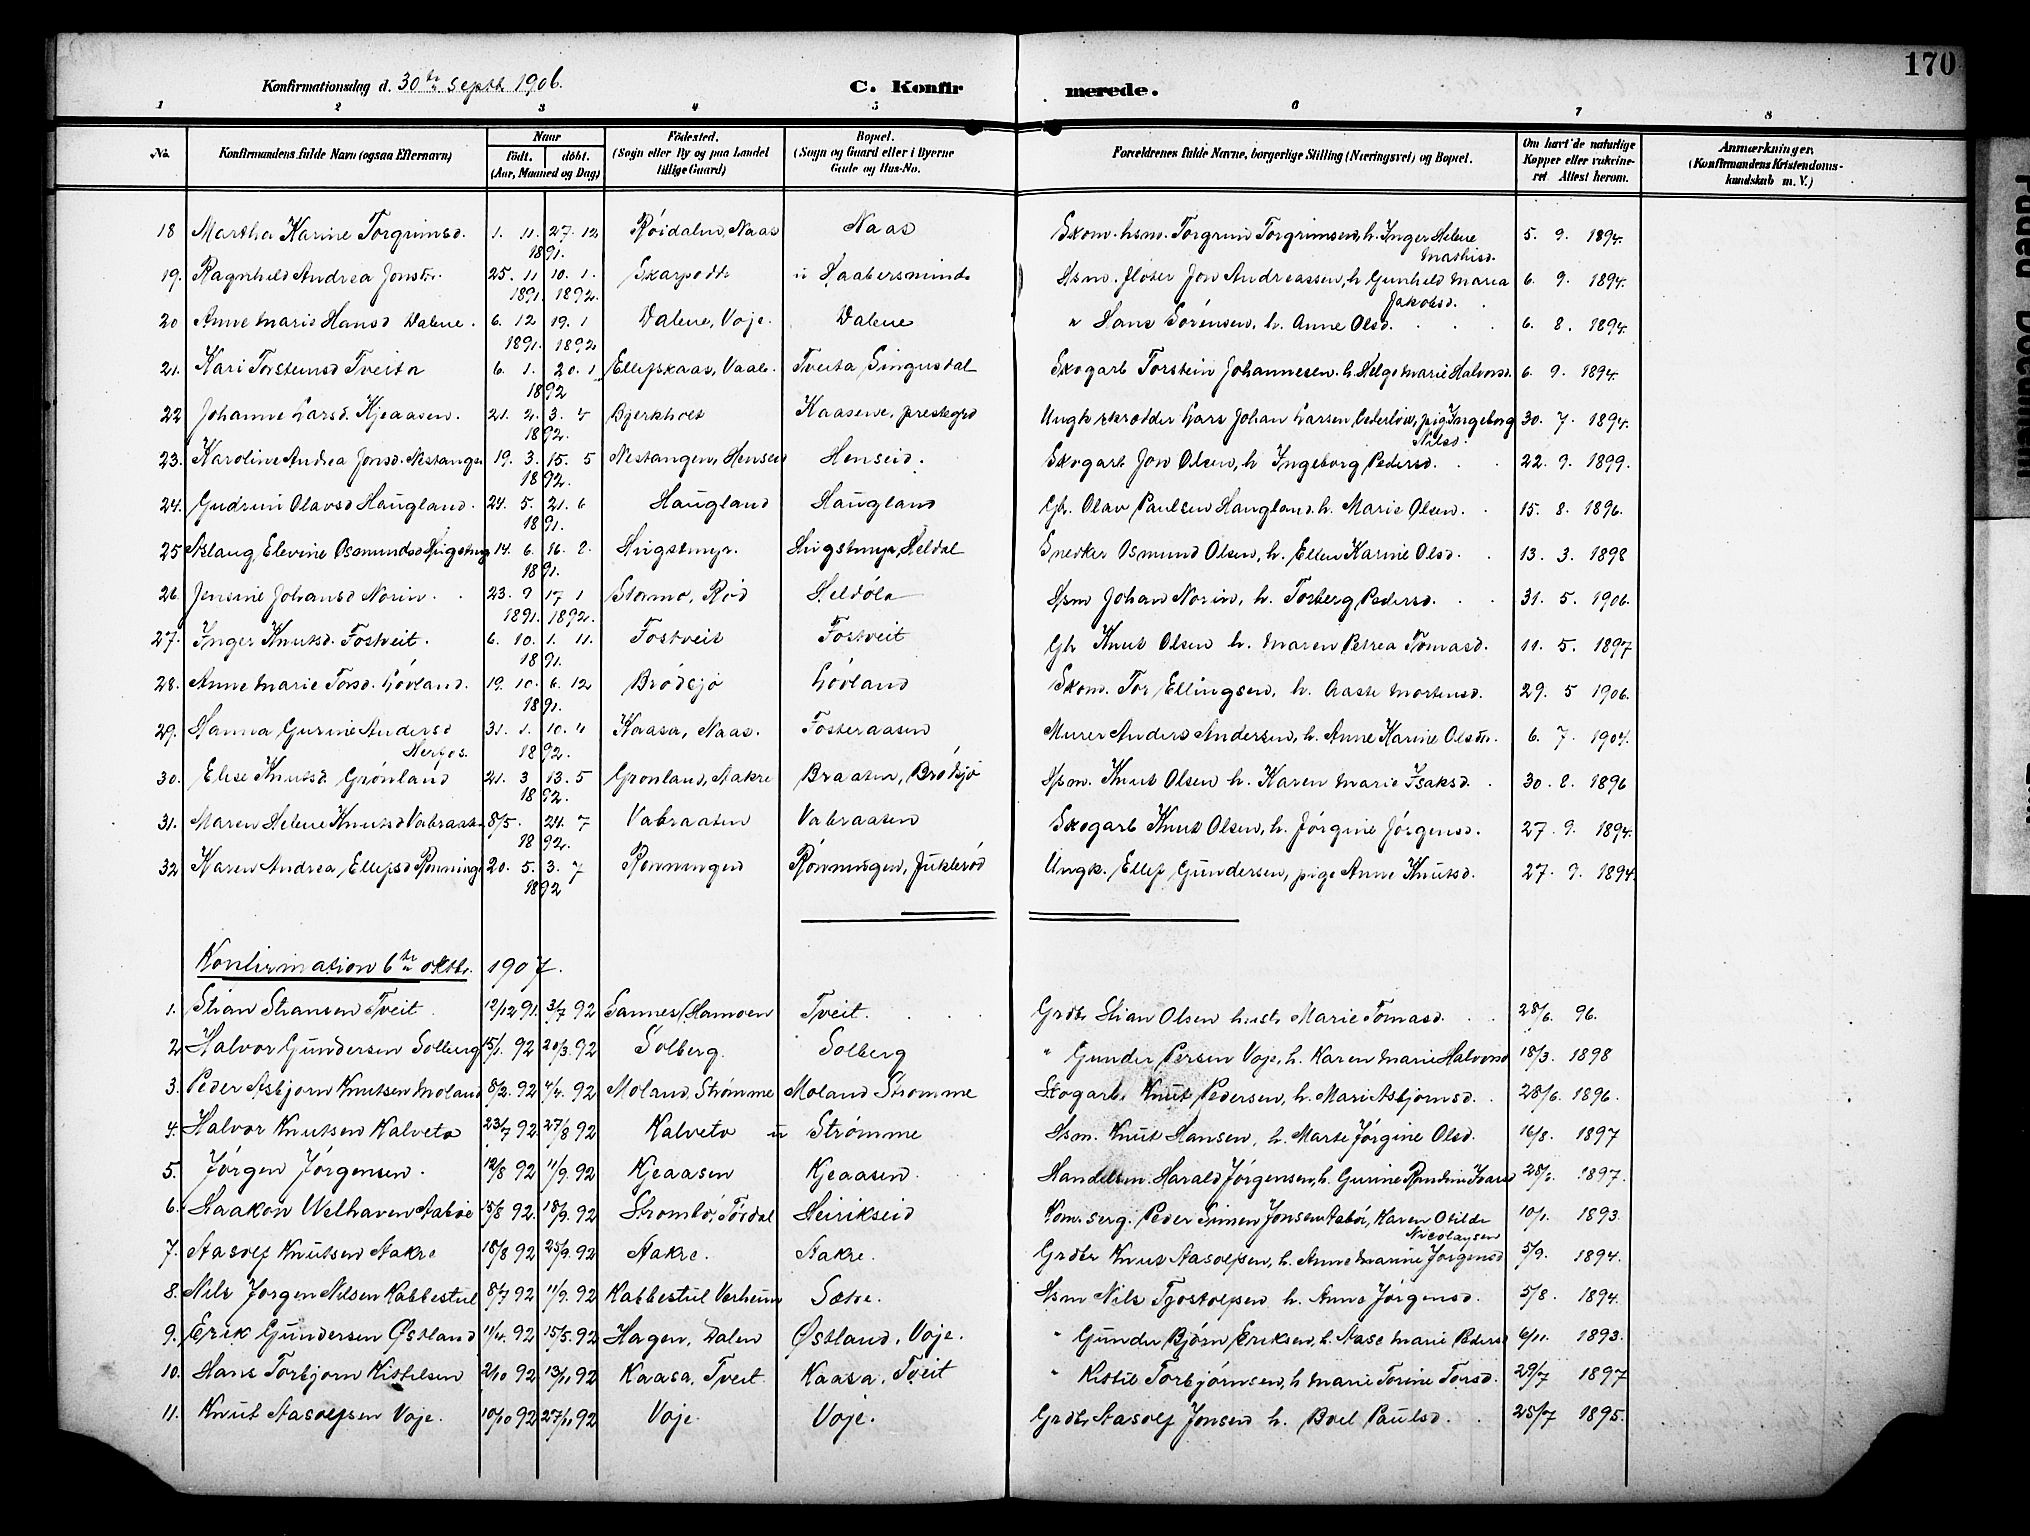 170
Konfirmationsdag d. 30te Septb. 1906. C. Konfirmerede.
1 2 3 4 5 6 7 8
No. Konfirmandens fulde Navn (ogsaa Efternavn) Naar födt. döbt. (Aar, Maaned og Dag) Födested. (Sogn eller By og paa Landet tillige Gaard) Bopæl. (Sogn og Gaard eller i Byerne Gade og Hus-No. Forældrenes fulde Navne, borgerlige Stilling (Næringsvei) og Bopæl. Om havt de naturlige Kopper eller vakcineret Attest herom. Anmærkninger, (Konfirmandens Kristendomskundskab m. V.)
18 Martha Karine Torgrimsd. 1. 11. 27. 12 1891. Röidalen, Naas Naas Skom. hsm. Torgrim Torgrimsen, h. Inger Helene Mathisd. 5. 9. 1894.
19. Ragnhild Andrea Jonsdtr. 25. 11 10. 1. 1891. 1892. Hsm. Jon Andreassen, h Gunhild Maria Jakobsd. 6. 9. 1894.
20 Anne Marie Hansd Dalene. 6. 12 19. 1 1891. 1892 Dalene, Voje. Dalene " Hans Sörensen, h. Anne Olsd. 6. 8. 1894.
21. Kari Torsteinsd Tveita 6. 1. 20. 1 1892 Tveita Singusdal Skogarb Torstein Johannesen. h. Helge Marie Halvorsd. 6. 9. 1894.
22 Johanne Larsd. Kjeaasen. 21. 2. 3. 4 1892. Bjerkholt Kaasene, prestegrd Ungk skrædder Lars Johan Larsen, pige Ingeborg Nilsd. 30. 7. 1894.
23. Karoline Andrea Jonsd. Nestangen 19. 3. 15. 5 1892. Nestangen, Henseid Henseid. Skogarb Jon Olsen, h Ingeborg Pedersd. 22. 9. 1899.
24. Gudrun Olavsd Haugland. 24. 5. 21. 6 1891. Haugland Haugland Gb. Olav Paulsen Haugland. h. Marie Olsen. 15. 8. 1896.
25 Aslaug Elevine Osmundsd 14. 6. 16. 8. 1891. Snedker Osmund Olsen, h. Ellen Karine Olsd. 13. 3. 1898
26. Jensine Johansd Norin. 23. 9 17 1 1891. 1892. Stormo, Röd Heldöla Hsm Johan Norin, h. Torberg Pedersd. 31. 5. 1906.
27. Inger Knutsd. Fostveit. 6. 10. 1. 11. 1891. Fostveit Fostveit Gb Knut Olsen h. Maren Petrea Tomasd. 11. 5. 1897
28. Anne Marie Torsd. Lövland. 19. 10. 6. 12 1891. Brödsjö Lövland Skom. Tor Ellingsen, h. Aaste Mortensd. 29. 5 1906.
29. Hanna Gurine Andersd Herfos. 31. 1. 10. 4 1892. Kaasa, Naas. Fosteraasen Murer Anders Andersen, h. Anne Karine Olsdtr. 6. 7. 1904.
30. Elise Knutsd. Grönland 21. 3 13. 5 1892. Grönland, Aakre Braaten, Brödsjö Hsm. Knut Olsen h. Karen Marie Isaksd. 30. 8. 1896
31. Maren Helene Knutsd Vabraaten 8/5. 24. 7 1892. Vabraaten Vabraaten Skogarb Knut Olsen, h. Jörgine Jörgensd. 27. 9. 1894.
32 Karen Andrea Ellefsd Rönningen 20. 5. 3. 7 1892 Rönningen Rönningen, Jukleröd Ungk. Ellef Gundersen, pige Anne Knutsd. 27. 9. 1894.
Konfirmation 6te oktbr. 1907.
1. Stian Stiansen Tveit 12/12 91. 3/7 92 Sannes (Hamoen Tveit. Grdbr Stian Olsen hustr Marie Tomasd. 28/6. 96.
2 Halvor Gundersen Solberg 15/1. 92 20/3. 92 Solberg. Solberg " Gunder Persen Voje, h. Karen Marie Halvorsd 18/3. 1898
3. Peder Asbjorn Knutsen Moland 8/2. 92 4/4. 92 Moland, Strømme Moland Strømme Skogarb. Knut Pedersen, h. Mari Asbjornsd. 28/6. 1896.
4. Halvor Knutsen Kalveto 23/7 92 27/8 92 Kalveto u Strømme Hsm. Knut Hansen, h. Marte Jörgine Olsd. 16/8. 1897
5. Jörgen Jörgensen. 12/8 92 11/9. 92 Kjeaasen Kjeaasen. Handelsm. Harald Jörgensen, h. Gurine 28/6. 1897.
6. Haakon Welhaven Aabøe 15/8 92. 18/9. 92 Strombo, Tördal Heirikseid Kom. serg. Peder Simen Jonsen Aaböe, Karen Otilde Nicolaysen 10/1. 1893.
7. Aasolf Knutsen Aakre 18/8 92 25/9. 92 Aakre. Aakre. Grdbr Knut Aasolfsen, h. Anne Marine Jørgensd 5/9. 1894.
8. Nils Jørgen Nilsen Kabbestul 8/7 92 11/9. 92 Kabbestul Vefheim Sætre. Hsm Nils Tjostolfsen h. Anne Jørgensd. 5/8. 1894.
9. Erik Gundersen Østland 11/4. 92 15/5. 92 Hagen, Dalen Østland, Voje. " Gunder Bjørn Eriksen, h. Aase Marie Pedersd 6/11. 1893.
10. Hans Torbjorn Kittilsen 2/10 92 13/11 92 Kaasa, Tveit. Kaasa, Tveit " Kittil Torbjörnsen, h Marie Torine Torsd. 29/7 1897
11. Knut Aasolfsen Voje. 10/10 92 27/11 92 Voje. Voje. Grdbr Aasolf Jonsen h. Boel Paulsd. 25/7 1895.